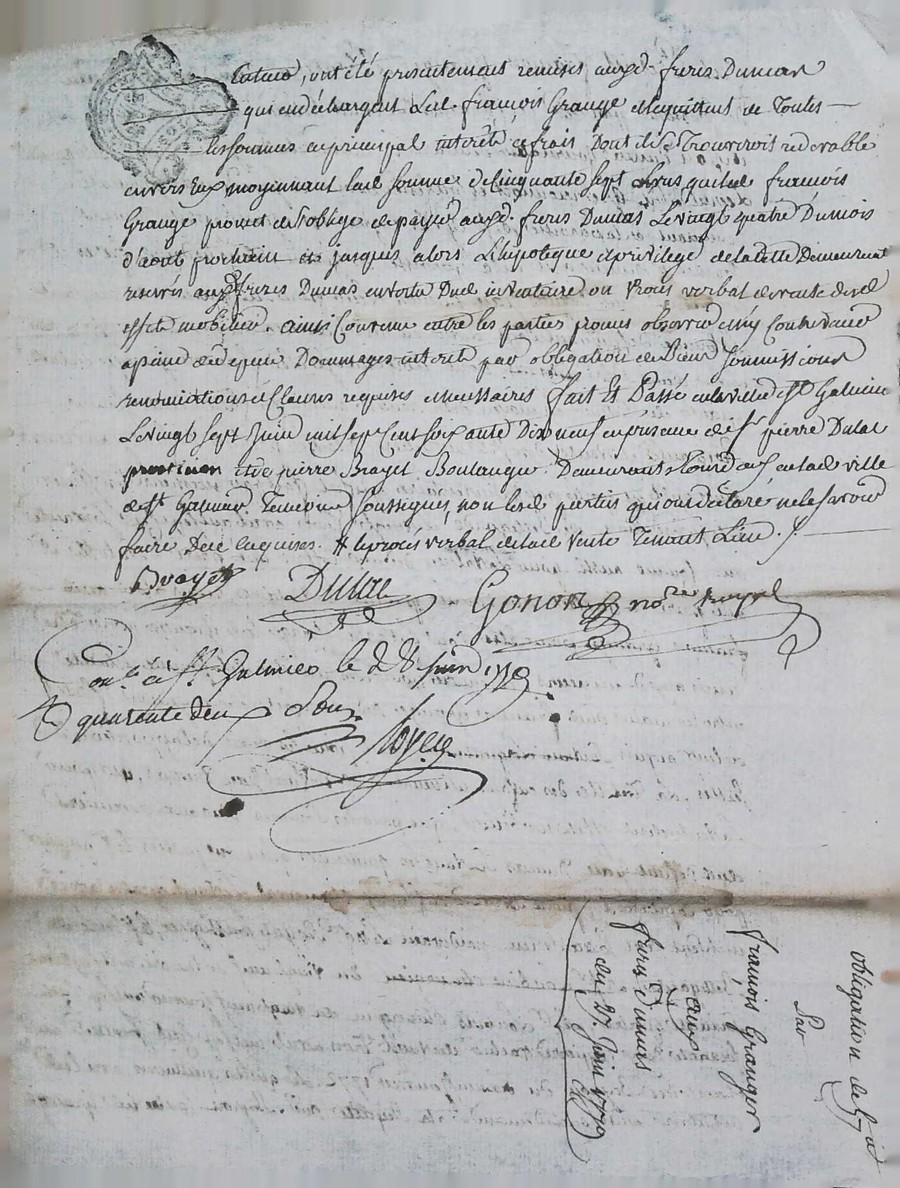 ont été presentement remises auxd. freres Dumas
qui en dechargent Led. françois Grange et le quittent de Toutes
les sommes en principal interets et frais Dont il se Trouveroit redevable
envers Eux moyennant lad. somme de Cinquante sept Livres que led. françois
Grange promet et s'oblige de payer auxd. freres Dumas Le vingt quatre Dumois
d'aout prochain et jusques alors L'hipoteque et privilege de la dette Demeurent
reservés auxd. freres Dumas en vertu Dud. inventaire ou Procés verbal de vente desd.
effets mobiliers. ainsi Convenu entre les parties promis observer et n'y Contrevenir
a peine de depens Dommages interets par obligation de Biens soumissions
renonciations et Clauses requises et necessaires fait Et Passé en la ville de St. Galmier
Le vingt sept Juin mil sept Cent soixante Dix neuf en presence de Sr. pierre Dulac
praticien et de pierre Brayet Boulanger Demeurants en lad. ville
de St. Galmier Temoins soussignés, non lesd. parties qui ont declaré ne le savoir
faire De ce Enquises. # le procés verbal de lad. vente Tenant Lieu.
Brayet Dulac Gonon nore. Royal
Con.le à St. Galmier le 28 juin 1779
quarante deux Sous
obligation de 57 #
Par
françois Granger
aux
freres Dumas
du 27. Juin 1779